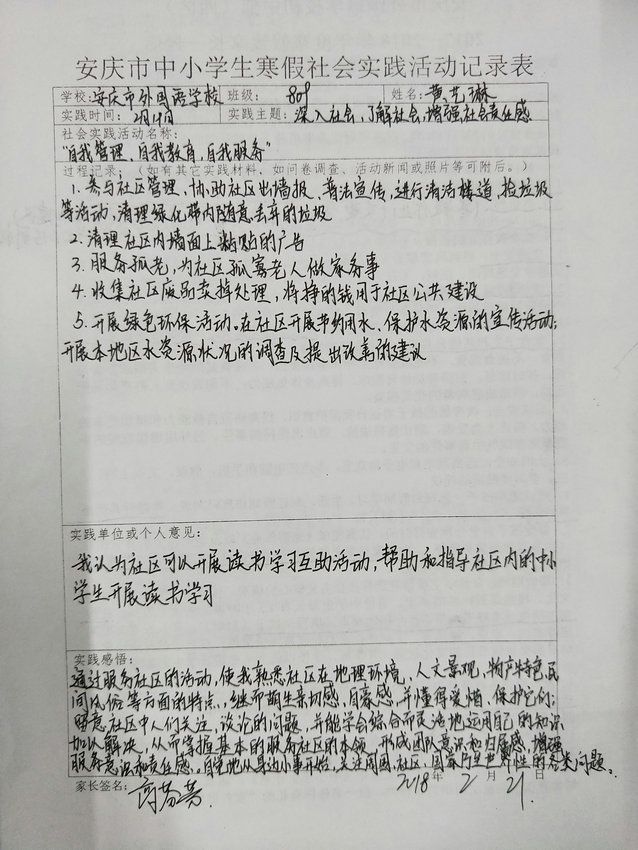 安庆市中小学生寒假社会实践活动记录表
学校: 安庆市外国语学校 班级: 809 姓名: 黄艺琳
实践时间: 2月19日 实践主题: 深入社会,了解社会,增强社会责任感
社会实践活动名称:
"自我管理,自我教育,自我服务"
过程记录: (如有其它实践材料,如问卷调查、活动新闻或照片等可附后。)
1. 参与社区管理,协助社区出墙报、普法宣传,进行清洁楼道,捡垃圾
等活动,清理绿化带内随意丢弃的垃圾
2. 清理社区内墙面上黏贴的广告
3. 服务孤老,为社区孤寡老人做家务事
4. 收集社区废品卖掉处理,将挣的钱用于社区公共建设
5. 开展绿色环保活动。在社区开展节约用水、保护水资源的宣传活动;
开展本地区水资源状况的调查及提出改善的建议
实践单位或个人意见:
我认为社区可以开展读书学习互助活动,帮助和指导社区内的中小
学生开展读书学习
实践感悟:
通过服务社区的活动,使我熟悉社区在地理环境、人文景观、物产特色,民
间风俗等方面的特点,继而萌生亲切感,自豪感,并懂得爱惜、保护它们;
留意社区中人们关注、议论的问题,并能学会综合而灵活地运用自己的知识
加以解决,从而掌握基本的服务社区的本领,形成团队意识和归属感,增强
服务意识和责任感。自觉地从身边小事开始,关注周围、社区、国家乃至世界性的各类问题。
家长签名: 2018年 2月 21日